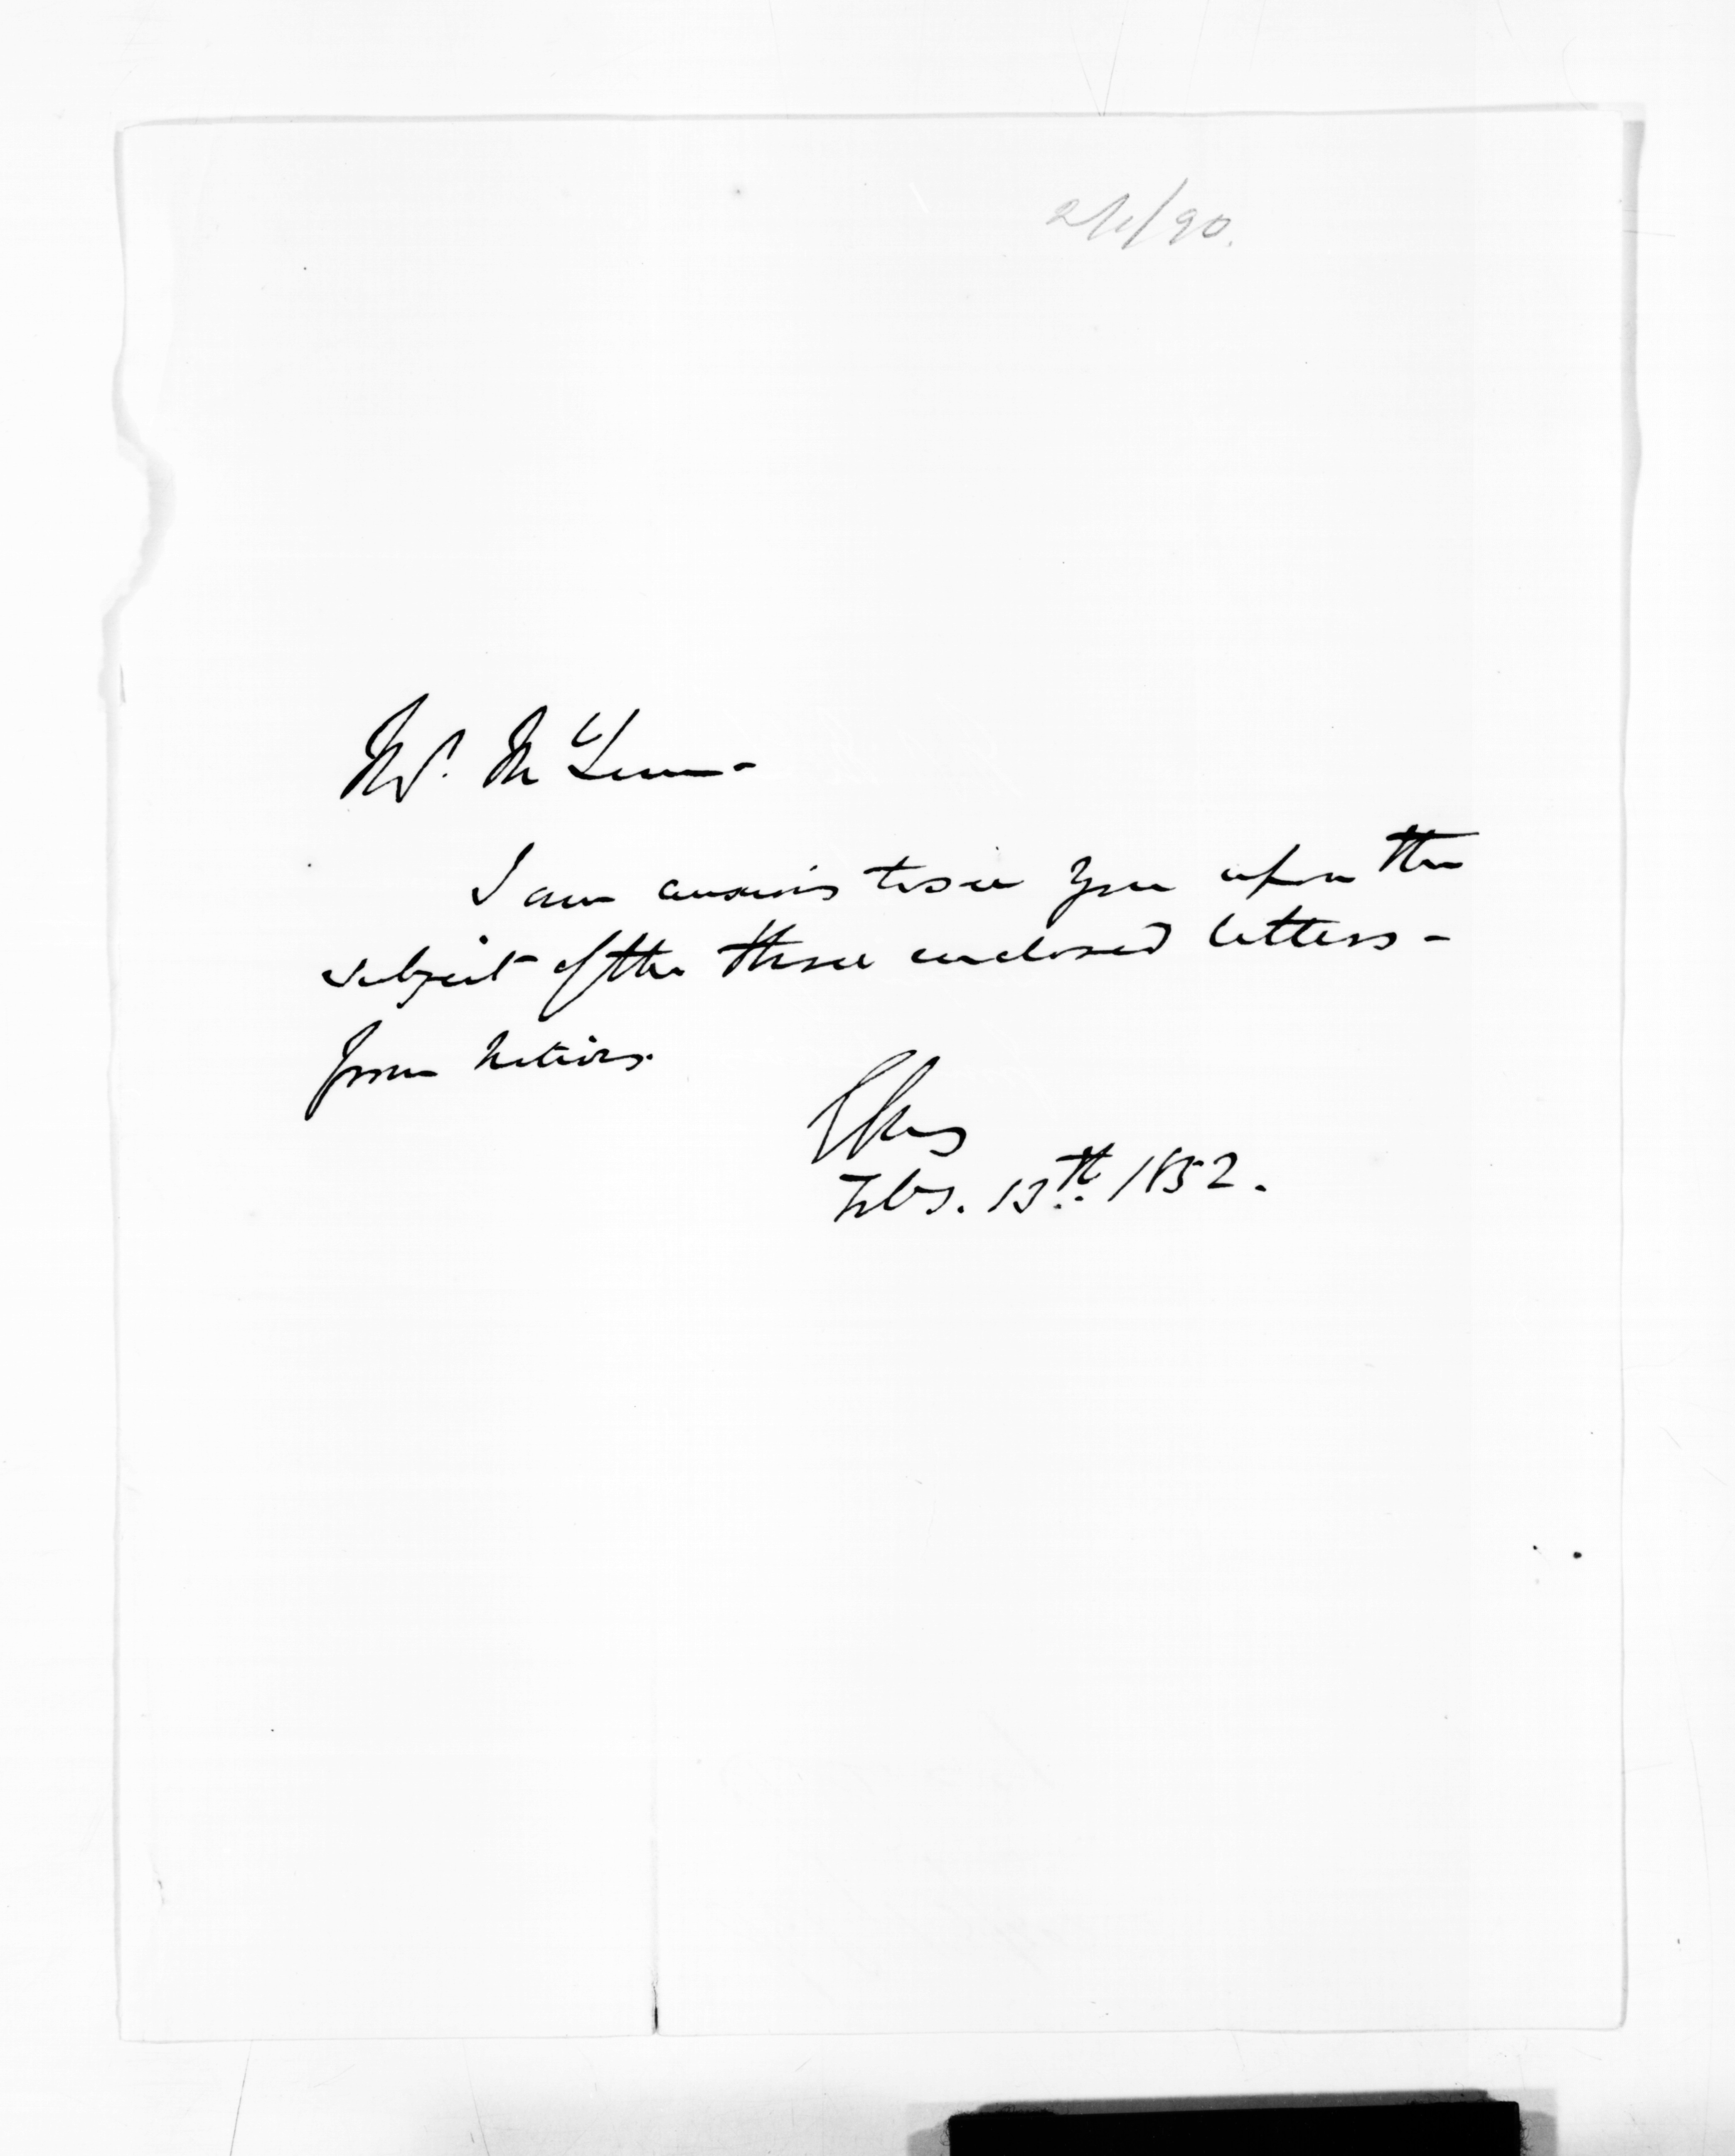 Mr. McLean-
I am anxious to see you upon the
subject of the three enclosed letters-
from natives.
Feby. 13th. 1852.